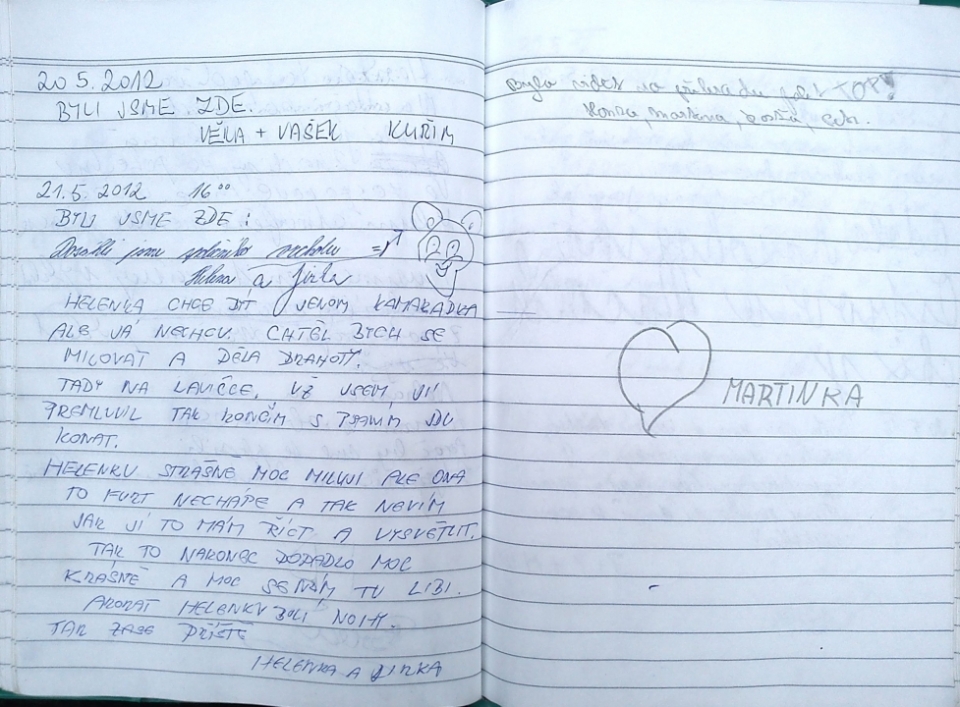 20 5. 2012
BYLI JSME ZDE.
VĚRA + VAŠEK KUŘIM
21.5. 2012 16⁰⁰
BYLI JSME ZDE :
Dosáhli jsme společného vrcholu =
Helena a Jirka
HELENKA CHCE BÝT JENOM KAMARÁDKA
ALE JÁ NECHCU. CHTĚL BYCH SE
MILOVAT A DĚLÁ DRAHOTY.
TADY NA LAVIČCE, UŽ JSEM JÍ
PŘEMLUVIL TAK KONČÍM S PSANÍM JDU
KONAT.
HELENKU STRAŠNĚ MOC MILUJI ALE ONA
TO FURT NECHÁPE A TAK NEVÍM
JAK JÍ TO MÁM ŘÍCT A VYSVĚTLIT.
TAK TO NAKONEC DOPADLO MOC
KRÁSNĚ A MOC SE NÁM TU LIBI.
AKORÁT HELENKU BOLÍ NOHY.
TAK ZASE PŘÍŠTĚ
HELENKA A JIRKA
TOP!
Honza, martina,
MARTINKA